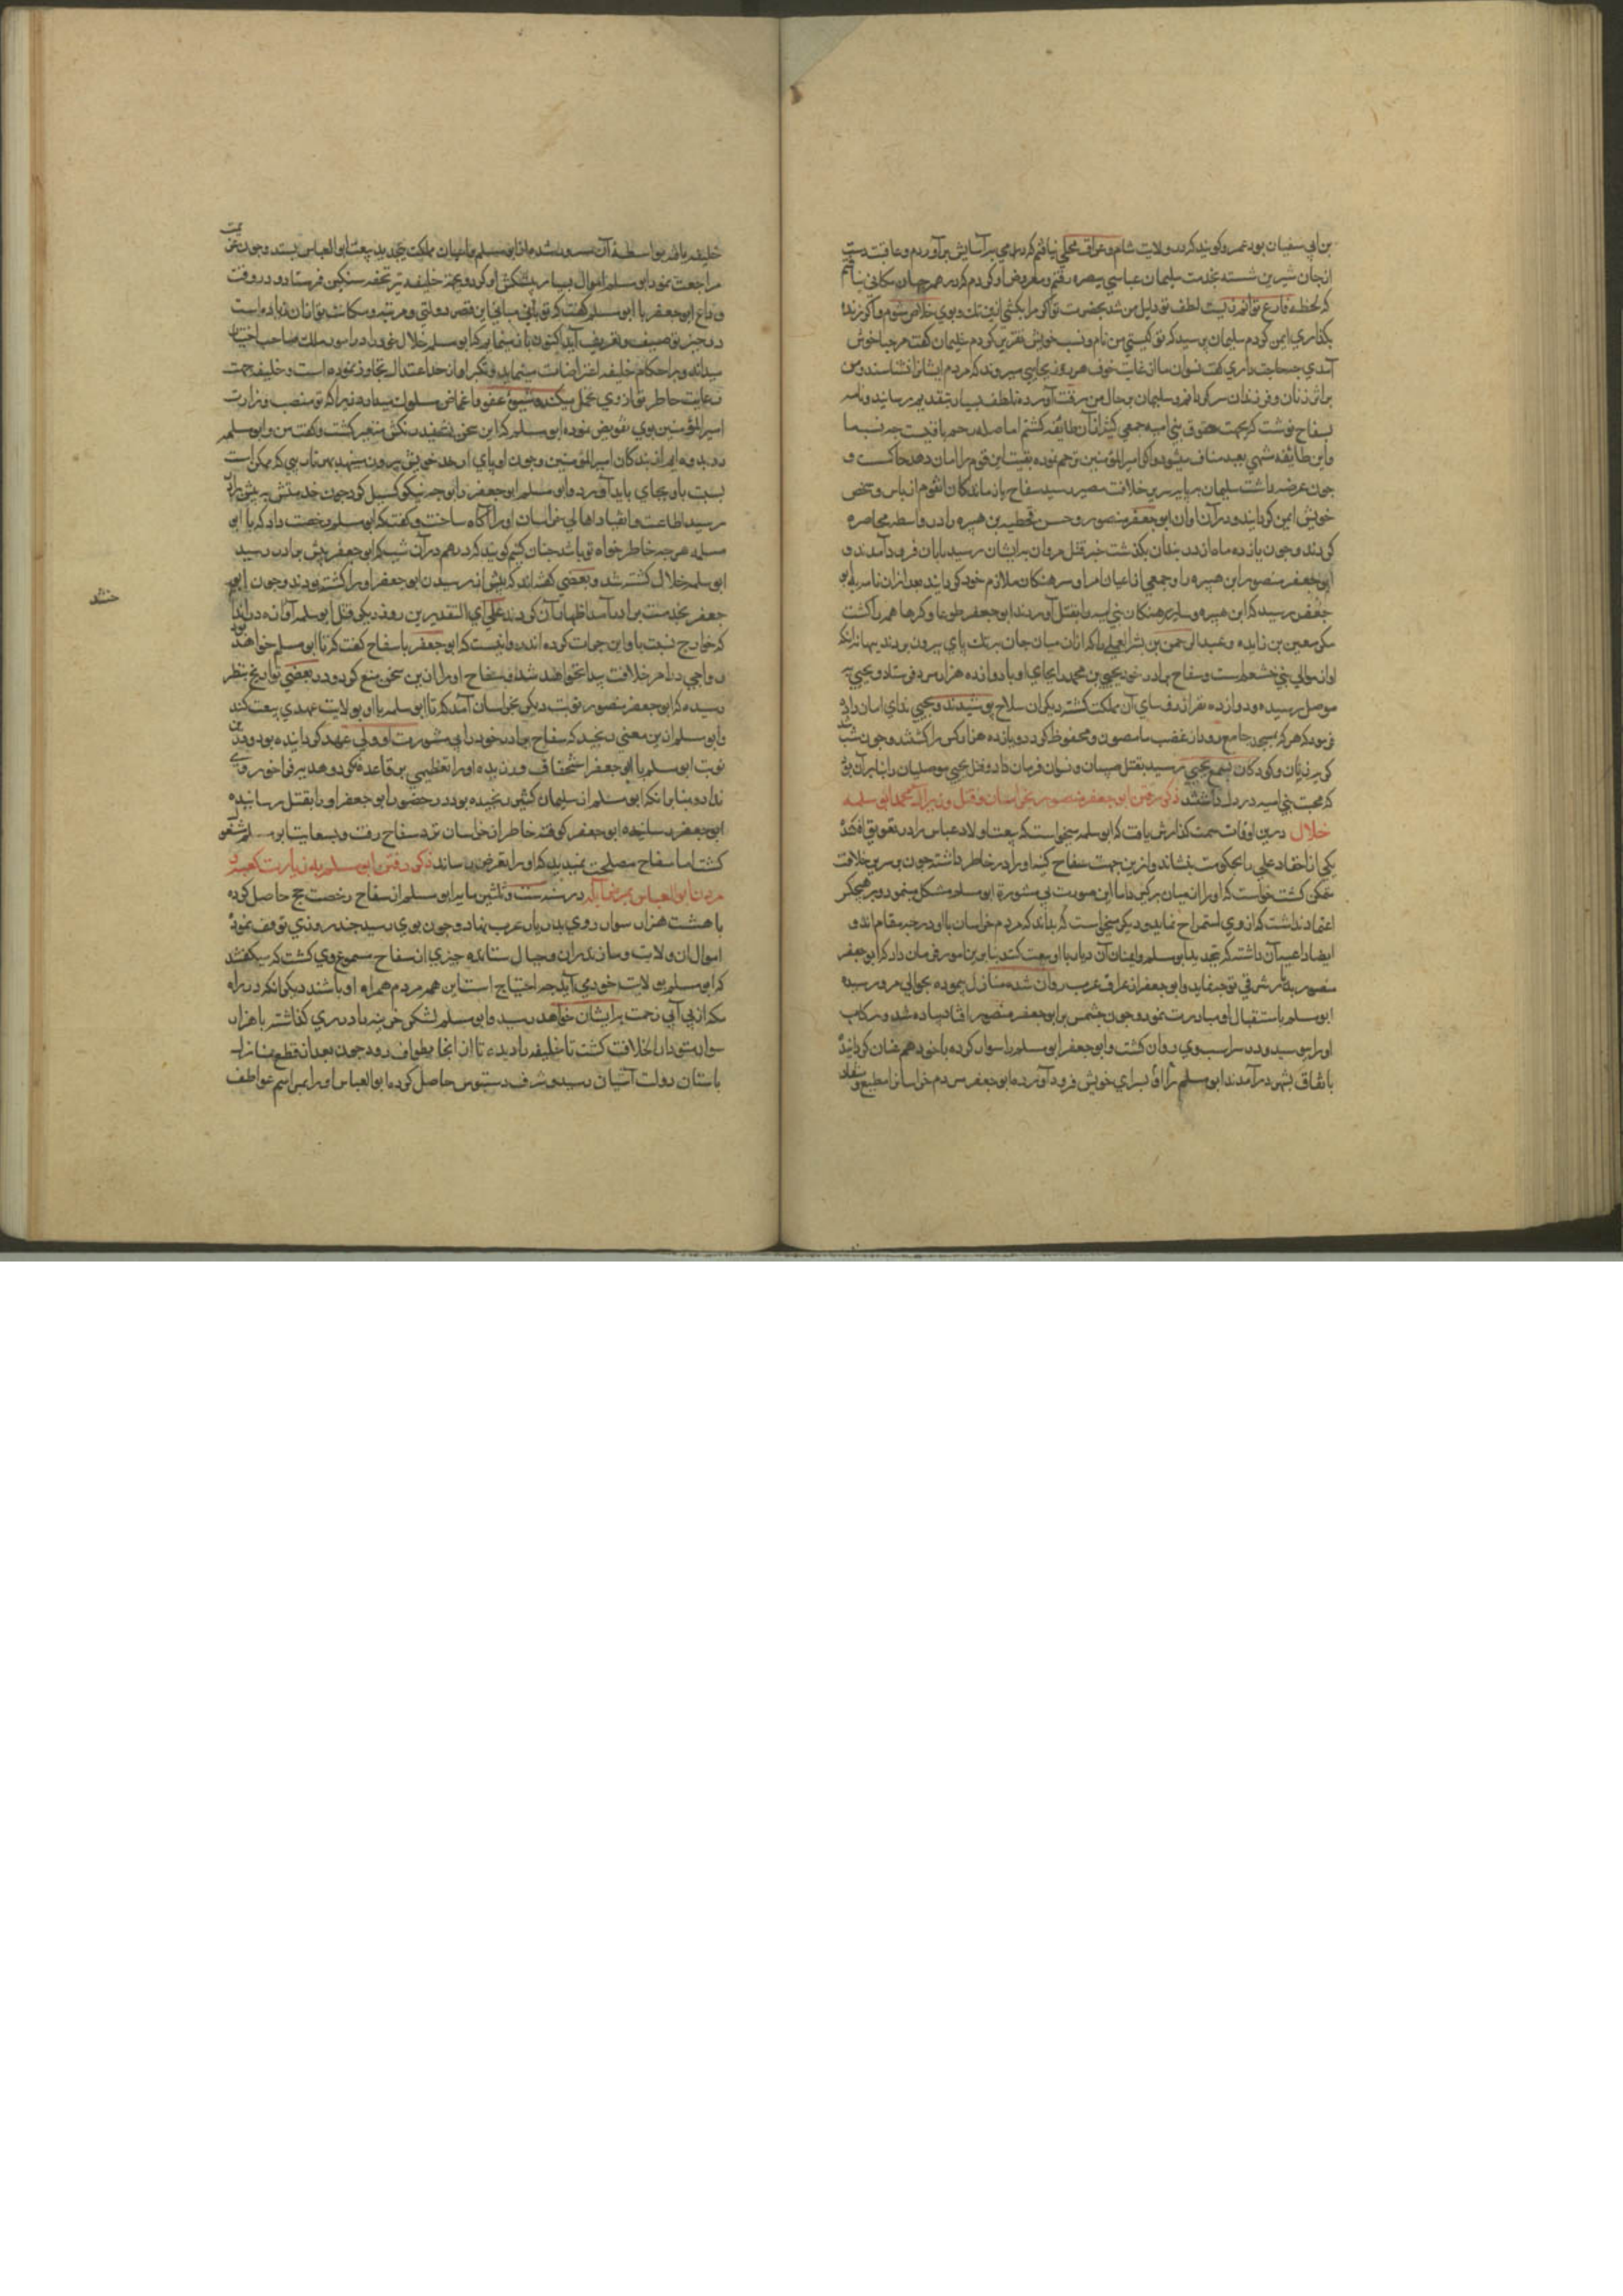 بن ابي سفيان بود عمرو كويند كه در ولايت شام و عراق محلي نيافتم كه در وي بر آسايش برآوردم و عاقبت دست
از جان شيرين شسته بخدمت سليمان عباسي ببصره رفتم و معروض او كردم كه در همه جهان مكاني نيافتم
كه لحظه فارغ توانم زيست لطف تو دليل من شد بحضرت تو اكر مرا بكشي ازين و بوي خلاص شوم و اكر زنده
بكذاري ايمن كردم سليمان پرسيد كه تو كيستي من نام و نسب خويش تقرير كردم سليمان كفت مرحبا خوش
آمدي چه حاجت داري كفت نسوان ما از غايت خوف هر روز بجايي ميروند كه مردم ايشانرا نشناسند و من
براي زنان و فرزندان سركردانم و سليمان بر حال من رقت آورده تلطف بسيار بتقديم رسانيد و نامه
بسفاح نوشت كه بجهت حقوق بني اميه جمعي كثير از آن طايفه كشتم اما صله رحم باقيست چه نسب ما
و اين طايفه بعبد مناف ميشود و اكر امير المؤمنين ترحم نموده بقيت اين قوم را امان دهد حاكمست و
چون عرضه داشت سليمان بپايه سرير خلافت مصير رسيد سفاح بازماندكان انقوم از باس و سخط
خويش ايمن كردانيد و در آن اوان ابو جعفر منصور و حسن قحطبه بن هبيره را در واسط محاصره
كردند و چون يازده ماه از بندان بكذشت خبر قتل مروان بر ايشان رسيد بامان فرود آمدند و
ابو جعفر منصور ابن هبيره را و جمعي از اعيان امرا و سرهنكان ملازم خود كردانيد بعد ازان نامه به ابو
جعفر رسيد كه ابن هبيره و ساير سرهنكان بني اميه را بقتل آورند ابو جعفر طوعا و كرها همه را كشت
مكر معن بن زايده و عبد الرحمن بن بشر العجلي را كه ازان ميان جان بتك پاي بيرون بردند بهانه انكه
او از موالي بني خثعم است و سفاح برادر خود يحيي بن محمد را بجاي او با دوازده هزار مرد فرستاد و يحيي به
موصل رسيده و دوازده نفر از رؤساي آن مملكت كشته ديكران سلاح پوشيدند و يحيي نداي امان داد
فرمود كه هر كه بمسجد جامع رود از غضب ما مصون و محفوظ كردد و يازده هزار كس را كشتند و چون شب شد
كريه زنان و كودكان بسمع يحيي رسيد بقتل صبيان و نسوان فرمان داد و قتل يحيي موصليان را بنابر آن بود
كه محبت بني اميه در دل داشتند ذكر رفتن ابو جعفر منصور بخراسان و قتل وزير آل محمد ابو سلمه
خلال درين اوقات سمت كذارش يافت كه ابو سلمه ميخواست كه بيعت اولاد عباس را در تعويق افكند
يكي از احفاد علي را بحكومت بنشاند و ازين جهت سفاح كينه او را در خاطر داشته چون بر سرير خلافت
متمكن كشت خواست كه او را از ميان بركيرد اما اين صورت بي مشورة ابو مسلم مشكل مينمود و بر هيچكس
اعتماد نداشت كه از وي استمزاج نمايد و ديكر ميخواست كه بداند كه مردم خراسان با او در چه مقام اند و
ايضا داعيه آن داشت كه تجديد ابو مسلم و اعيان آن ديار با او بيعت كنند بنابرين امور فرمان داد كه ابو جعفر
منصور بديار شرقي توجه نمايد و ابو جعفر از عراق عرب روان شده منازل پيموده بحوالي مرو رسيده
ابو مسلم باستقبال او مبادرت نمود و چون چشمش بر ابو جعفر منصور افتاد پياده شد و ركاب
او را بوسيد و در سر اسب وي روان كشت و ابو جعفر ابو مسلم را سوار كرده با خود هم عنان كردانيد
باتفاق بشهر در آمدند ابو مسلم او را بسراي خويش فرود آورده ابو جعفر مردم خراسان را مطيع و منقاد
خليفه يافته بواسطه آن مسرور شد و ابو مسلم و اعيان مملكت تجديد بيعت ابو العباس بستند و چون عزيمت
مراجعت نمود ابو مسلم اموال بسيار پيشكش او كرد و بجهة خليفه نيز تحفه سنكين فرستاد و در وقت
وداع ابو جعفر با ابو مسلم كفت كه تو باني مباني اين قصر دولتي و مرتبه و مكانت تو ازان زياده است
در حيز توصيف و تعريف آيد اكنون باز مينمايم كه ابو سلمه خلال خود را در امور ملك صاحب اختيار
ميداند و بر احكام خليفه اعتراضات مينمايد و تكبر او از حد اعتدال تجاوز نموده است و خليفه جهت
رعايت خاطر تو از وي تحمل ميكند و شيوه عفو و اغماض مسلوك ميدارد زيرا كه تو منصب وزارت
امير المؤمنين بوي تفويض نموده ابو مسلم كه اين سخن بشنيد رنكش متغير كشت و كفت من و ابو سلمه
هر دو بنده ايم از بندكان امير المؤمنين و چون او پاي از حد خويش بيرون مينهد بهر تاديبي كه ممكن است
نسبت باو بجاي بايد آورد و ابو مسلم ابو جعفر را بوجه نيكو كسيل كرد چون خدمتش پيش برادر
رسيد اطاعت و انقياد اهالي خراسان او را آكاه ساخت و كفت كه ابو مسلم رخصت داد كه با ابو
سلمه هر چه خاطر خواه تو باشد چنان كنيم كويند كه هم در آن شب كه ابو جعفر پيش برادر رسيد
ابو سلمه خلال كشته شد و بعضي كفته اند كه پيش از رسيدن ابو جعفر او را كشته بودند و چون ابو
جعفر بخدمت برادر آمد اظهار آن كردند علي اي التقديرين روز ديكر قتل ابو سلمه آوازه در انداختند
كه خوارج نسبت باو اين جرات كرده اند و روايتست كه ابو جعفر با سفاح كفت كه تا ابو مسلم خواهد بود
رواجي در امر خلافت پيدا نخواهد شد و سفاح او را ازين سخن منع كرد و در بعضي تواريخ بنظر
رسيده كه ابو جعفر منصور نوبت ديكر بخراسان آمد كه تا ابو مسلم با او بولايت عهدي بيعت كند
و ابو مسلم ازين معني رنجيد كه سفاح برادر خود را بي مشورت او ولي عهد كردانيده بود و درين
نوبت ابو مسلم با ابو جعفر استخفاف ورزيده او را تعظيمي بر قاعده نكرد و هديه فراخور وي
نداد و بنابر انكه ابو مسلم از سليمان كثير رنجيده بود در حضور ابو جعفر او را بقتل رسانيده
ابو جعفر كوفته خاطر از خراسان نزد سفاح رفت و بسعايت ابو مسلم مشغول
كشت اما سفاح مصلحت نميديد كه او را تعرض رساند ذكر رفتن ابو مسلم به زيارت كعبه و
مردن ابو العباس بمرض آبله در سنه ست و ثلثين مايه ابو مسلم از سفاح رخصت حج حاصل كرده
با هشت هزار سوار روي بديار عرب نهاد و چون بري رسيد چند روزي توقف نموده
اموال ان ولايت و مازندران و جبال ستانده چيزي از سفاح مسموع وي كشت كه ميكفتند
كه ابو مسلم بولايت خود مي آيد چه احتياج است اين همه مردم همراه او باشند ديكر انكه در راه
مكه از بي آبي زحمت بر ايشان خواهد رسيد و ابو مسلم لشكر خزينه را در ري كذاشته با هزار
سوار متوجه دار الخلافت كشت تا خليفه را ديده تا از انجا بطواف رود چون بعد از قطع منازل
باستان دولت آشيان رسيد و شرف دستبوس حاصل كرده ابو العباس او را بمراسم عواطف